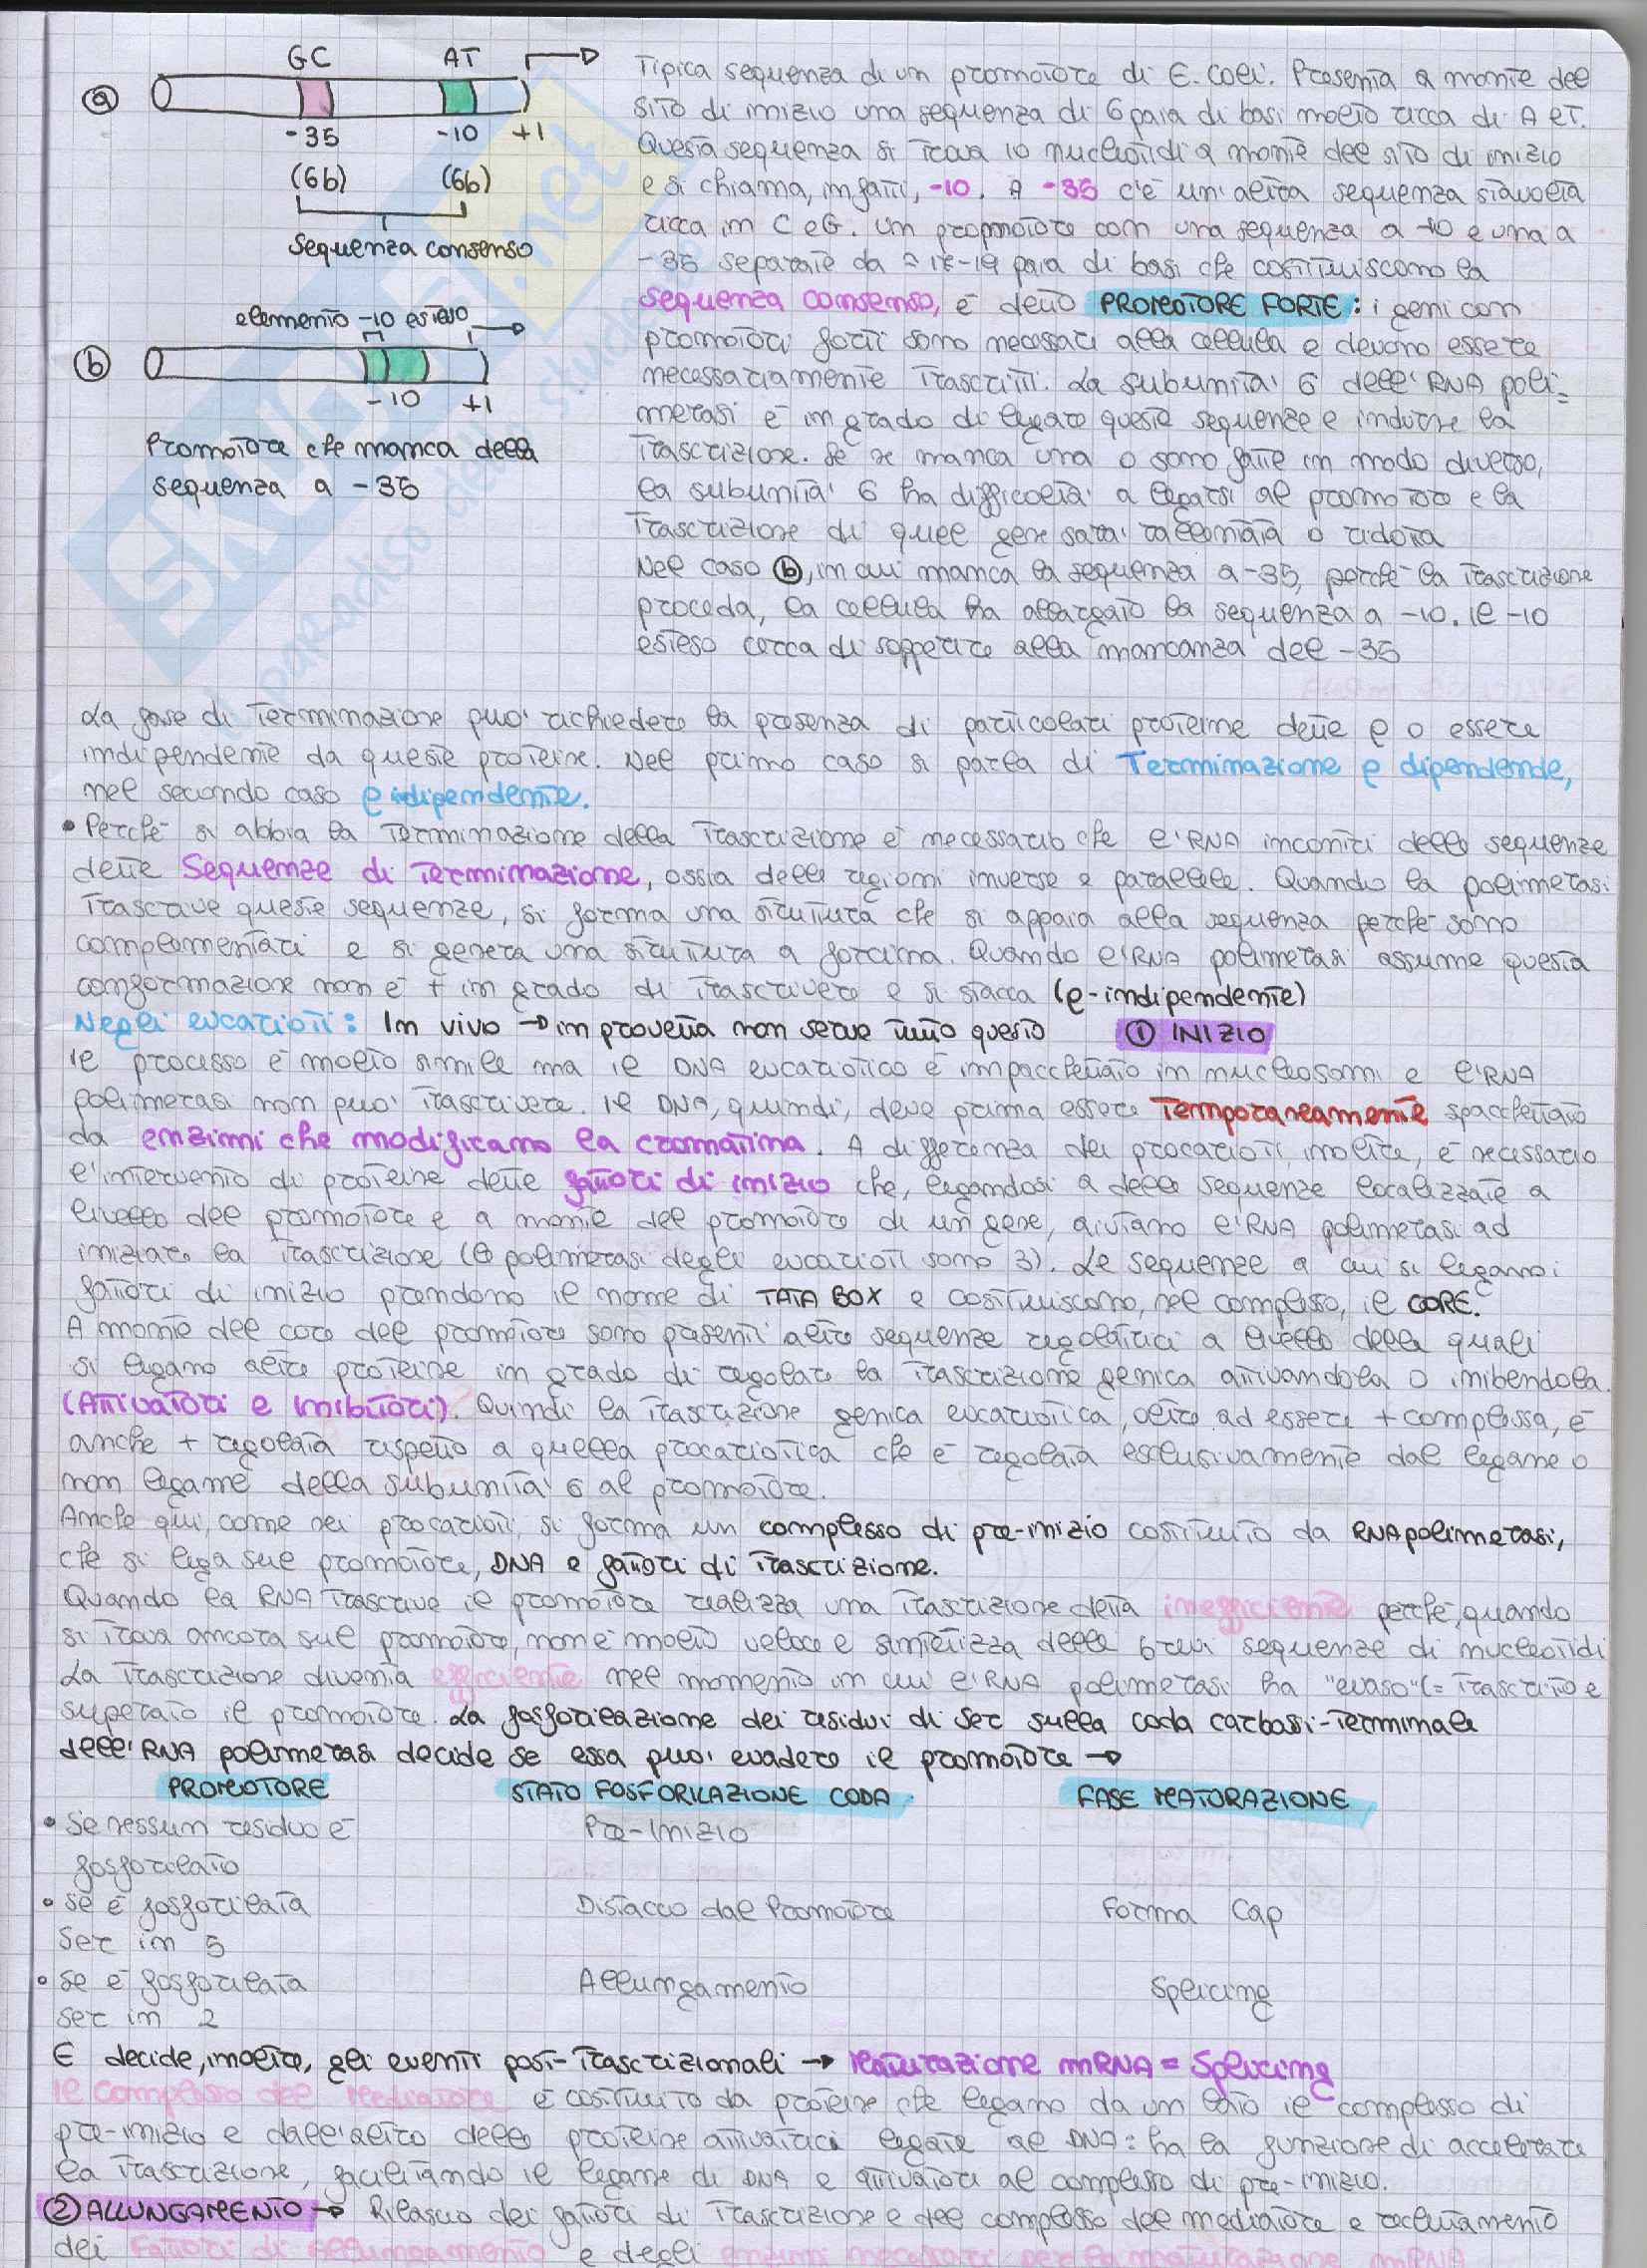 GC AT
ⓐ
-35 -10 +1
(6b) (6b)
Sequenza consenso
elemento -10 esteso
ⓑ
-10 +1
Promotore che manca della
sequenza a -35
Tipica sequenza di un promotore di E. Coli. Presenta a monte del
sito di inizio una sequenza di 6 paia di basi molto ricca di A e T.
Questa sequenza si trova 10 nucleotidi a monte del sito di inizio
e si chiama, infatti, -10. A -35 c'è un'altra sequenza stavolta
ricca in C e G. Un promotore con una sequenza a -10 e una a
-35 separate da paia di basi che costituiscono la
sequenza consenso, è detto PROMOTORE FORTE: i geni con
promotori forti sono necessari alla cellula e devono essere
necessariamente trascritti. La subunità σ dell'RNA poli=
merasi è in grado di legare queste sequenze e indurre la
trascrizione. Se ne manca una o sono fatte in modo diverso,
la subunità σ ha difficoltà a legarsi al promotore e la
trascrizione di quel gene sarà rallentata o ridotta
Nel caso ⓑ, in cui manca la sequenza a -35, perchè la trascrizione
proceda, la cellula ha allargato la sequenza a -10. Il -10
esteso cerca di sopperire alla mancanza del -35
La fase di Terminazione può richiedere la presenza di particolari proteine dette ρ o essere
indipendente da queste proteine. Nel primo caso si parla di Terminazione ρ dipendende,
nel secondo caso ρ indipendente.
• Perchè si abbia la Terminazione della Trascrizione è necessario che l'RNA incontri delle sequenze
dette Sequenze di Terminazione, ossia delle regioni inverse e parallele. Quando la polimerasi
Trascrive queste sequenze, si forma una struttura che si appaia alla sequenza perchè sono
complementari e si genera una struttura a forcina. Quando l'RNA polimerasi assume questa
conformazione non è + in grado di trascrivere e si stacca (ρ-indipendente)
Negli eucarioti: In vivo → in provetta non serve tutto questo ① INIZIO
Il processo è molto simile ma il DNA eucariotico è impacchettato in nucleosomi e l'RNA
polimerasi non può trascrivere. Il DNA, quindi, deve prima essere Temporaneamente spacchettato
da enzimi che modificano la cromatina. A differenza dei procarioti inoltre, è necessario
l'intervento di proteine dette fattori di inizio che, legandosi a delle sequenze localizzate a
livello del promotore e a monte del promotore di un gene, aiutano l'RNA polimerasi ad
iniziare la trascrizione (le polimerasi degli eucarioti sono 3). Le sequenze a cui si legano i
fattori di inizio prendono il nome di TATA BOX e costituiscono, nel complesso, il CORE.
A monte del core del promotore sono presenti altre sequenze regolatrici a livello delle quali
si legano altre proteine in grado di regolare la trascrizione genica attivandola o inibendola.
(Attivatori e inibitori). Quindi la trascrizione genica eucariotica, oltre ad essere + complessa, è
anche + regolata rispetto a quella procariotica che è regolata esclusivamente dal legame o
non legame della subunità σ al promotore.
Anche qui, come nei procarioti, si forma un complesso di pre-inizio costituito da RNA polimerasi,
che si lega sul promotore, DNA e fattori di trascrizione.
Quando la RNA trascrive il promotore realizza una trascrizione detta inefficiente perchè, quando
si trova ancora sul promotore, non è molto veloce e sintetizza delle brevi sequenze di nucleotidi
La trascrizione diventa efficiente nel momento in cui l'RNA polimerasi ha "evaso" (= trascritto e
superato il promotore. La fosforilazione dei residui di Ser sulla coda carbossi-terminale
dell'RNA polimerasi decide se essa può evadere il promotore →
PROMOTORE STATO FOSFORILAZIONE CODA FASE MATORAZIONE
• Se nessun residuo è Pre-Inizio
fosforilato
• se è fosforilata Distacco dal Promotore Forma Cap
Ser in 5
• se è fosforilata Allungamento Splicing
ser in 2
E decide, inoltre, gli eventi post-trascrizionali → Maturazione mRNA = Splicing
Il complesso del mediatore è costituito da proteine che legano da un lato il complesso di
pre-inizio e dall'altro delle proteine attivatrici legate al DNA: ha la funzione di accelerare
la trascrizione, facilitando il legame di DNA e attivatori al complesso di pre-inizio.
② ALLUNGAMENTO → Rilascio dei fattori di trascrizione e del complesso del mediatore e reclutamento
dei fattori di allungamento e degli enzimi necessari per la maturazione mRNA